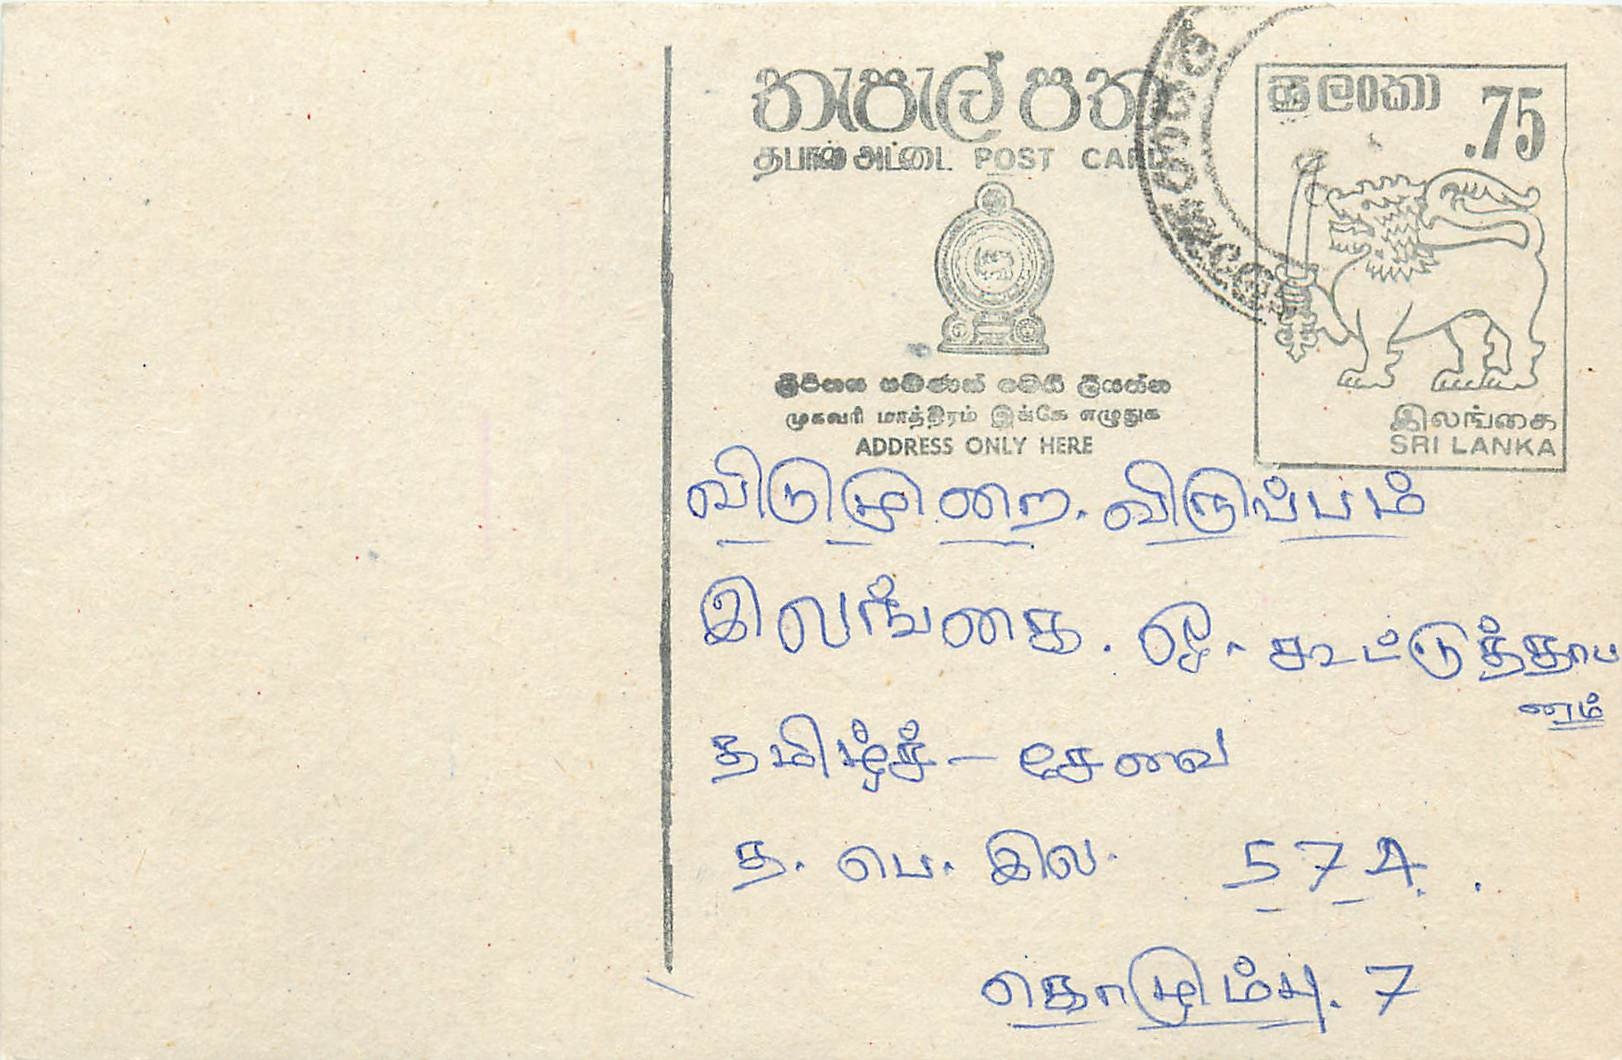 තැපැල් පත
தபால் அட்டை POST CARD
ශ්‍රී ලංකා .75
ලිපිනය පමණක් මෙහි ලියන්න
முகவரி மாத்திரம் இங்கே எழுதுக
ADDRESS ONLY HERE
இலங்கை
SRI LANKA
விடுமுறை. விருப்பம்
இலங்கை. ஒ. கூட்டுத்தாப
னம்
தமிழ்ச் - சேவை
த. பெ. இல. 574.
கொழும்பு. 7